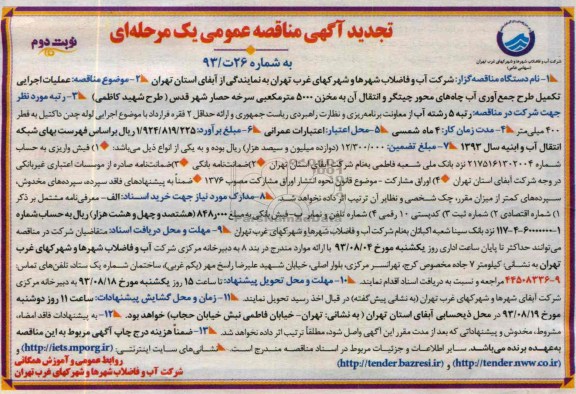 تجدید آگهی مناقصه عمومی یک مرحله‌ای
به شماره ۲۶ت/۹۳
نوبت دوم
شرکت آب و فاضلاب شهرها و شهرکهای غرب تهران
(سهامی خاص)
۱-نام دستگاه مناقصه‌گزار: شرکت آب و فاضلاب شهرها و شهرکهای غرب تهران به نمایندگی از آبفای استان تهران ۲-موضوع مناقصه: عملیات اجرایی
تکمیل طرح جمع‌آوری آب چاه‌های محور چیتگر و انتقال آن به مخزن ۵۰۰۰ مترمکعبی سرخه حصار شهر قدس (طرح شهید کاظمی) ۳-رتبه مورد نظر
جهت شرکت در مناقصه: رتبه ۵ رشته آب از معاونت برنامه‌ریزی و نظارت راهبردی ریاست جمهوری و ارائه حداقل ۲ فقره قرارداد با موضوع اجرایی لوله چدن داکتیل به قطر
۴۰۰ میلی‌متر ۴-مدت زمان کار: ۴ ماه شمسی ۵-محل اعتبار: اعتبارات عمرانی ۶-مبلغ برآورد: ۱/۹۲۴/۸۱۹/۲۲۵ ریال براساس فهرست بهای شبکه
انتقال آب و ابنیه سال ۱۳۹۳ ۷-مبلغ تضمین: ۱۲/۳۰۰/۰۰۰ (دوازده میلیون و سیصد هزار) ریال بوده و به یکی از انواع ذیل می‌باشد: ۱) فیش واریزی به حساب
شماره ۲۱۷۵۱۶۱۳۰۲۰۰۴ نزد بانک ملی شعبه فاطمی بنام شرکت آبفای استان تهران ۲) ضمانت‌نامه بانکی ۳) ضمانت‌نامه صادره از موسسات اعتباری غیربانکی
در وجه شرکت آبفای استان تهران ۴) اوراق مشارکت - موضوع قانون نحوه انتشار اوراق مشارکت مصوب ۱۳۷۶ *ضمناً به پیشنهادهای فاقد سپرده، سپرده‌های مخدوش،
سپرده‌های کمتر از میزان مقرر، چک شخصی و نظایر آن ترتیب اثر داده نخواهد شد. ۸-مدارک مورد نیاز جهت خرید اسناد: الف-معرفی‌نامه مشتمل بر ذکر
۱) شماره اقتصادی ۲) شماره ثبت ۳) کدپستی ۱۰ رقمی ۴) شماره تلفن و نمابر ب-فیش بانکی به مبلغ ۸۴۸٫۰۰۰ (هشتصد و چهل و هشت هزار) ریال به حساب شماره
۱-۶۰۰۰۰۰۰-۴-۱۱۷ نزد بانک سینا شعبه اکباتان بنام شرکت آب و فاضلاب شهرها و شهرکهای غرب تهران ۹-مهلت و محل دریافت اسناد: متقاضیان شرکت در مناقصه
می‌توانند حداکثر تا پایان ساعت اداری روز یکشنبه مورخ ۹۳/۰۸/۰۴ با ارائه موارد مندرج در بند ۸ به دبیرخانه مرکزی شرکت آب و فاضلاب شهرها و شهرکهای غرب
تهران به نشانی: کیلومتر ۷ جاده مخصوص کرج، تهرانسر مرکزی، بلوار اصلی، خیابان شهید علیرضا راسخ مهر (یکم غربی)، ساختمان شماره یک ستاد، تلفن‌های تماس:
۴۴۵۰۸۳۳۶-۹ مراجعه و نسبت به دریافت اسناد اقدام نمایند. ۱۰-مهلت و محل تحویل پیشنهاد: تا ساعت ۱۵ روز یکشنبه مورخ ۹۳/۰۸/۱۸ به دبیرخانه مرکزی
شرکت آبفای شهرها و شهرکهای غرب تهران (به نشانی پیش گفته) در قبال اخذ رسید تحویل نمایند. ۱۱-زمان و محل گشایش پیشنهادات: ساعت ۱۱ روز دوشنبه
مورخ ۹۳/۰۸/۱۹ در محل ذیحسابی آبفای استان تهران (به نشانی: تهران- خیابان فاطمی نبش خیابان حجاب) خواهد بود. ۱۲-به پیشنهادات فاقد امضاء،
مشروط، مخدوش و پیشنهاداتی که بعد از مدت مقرر این آگهی واصل شود، مطلقاً ترتیب اثر داده نخواهد شد. ۱۳-ضمناً هزینه درج چاپ آگهی مربوط به این مناقصه
به عهده برنده می‌باشد. سایر اطلاعات و جزئیات مربوط در اسناد مناقصه مندرج است. نشانی‌های سایت اینترنتی: (http://iets.mporg.ir) و
(http://tender.nww.co.ir) و (http://tender.bazresi.ir)
روابط عمومی و آموزش همگانی
شرکت آب و فاضلاب شهرها و شهرکهای غرب تهران